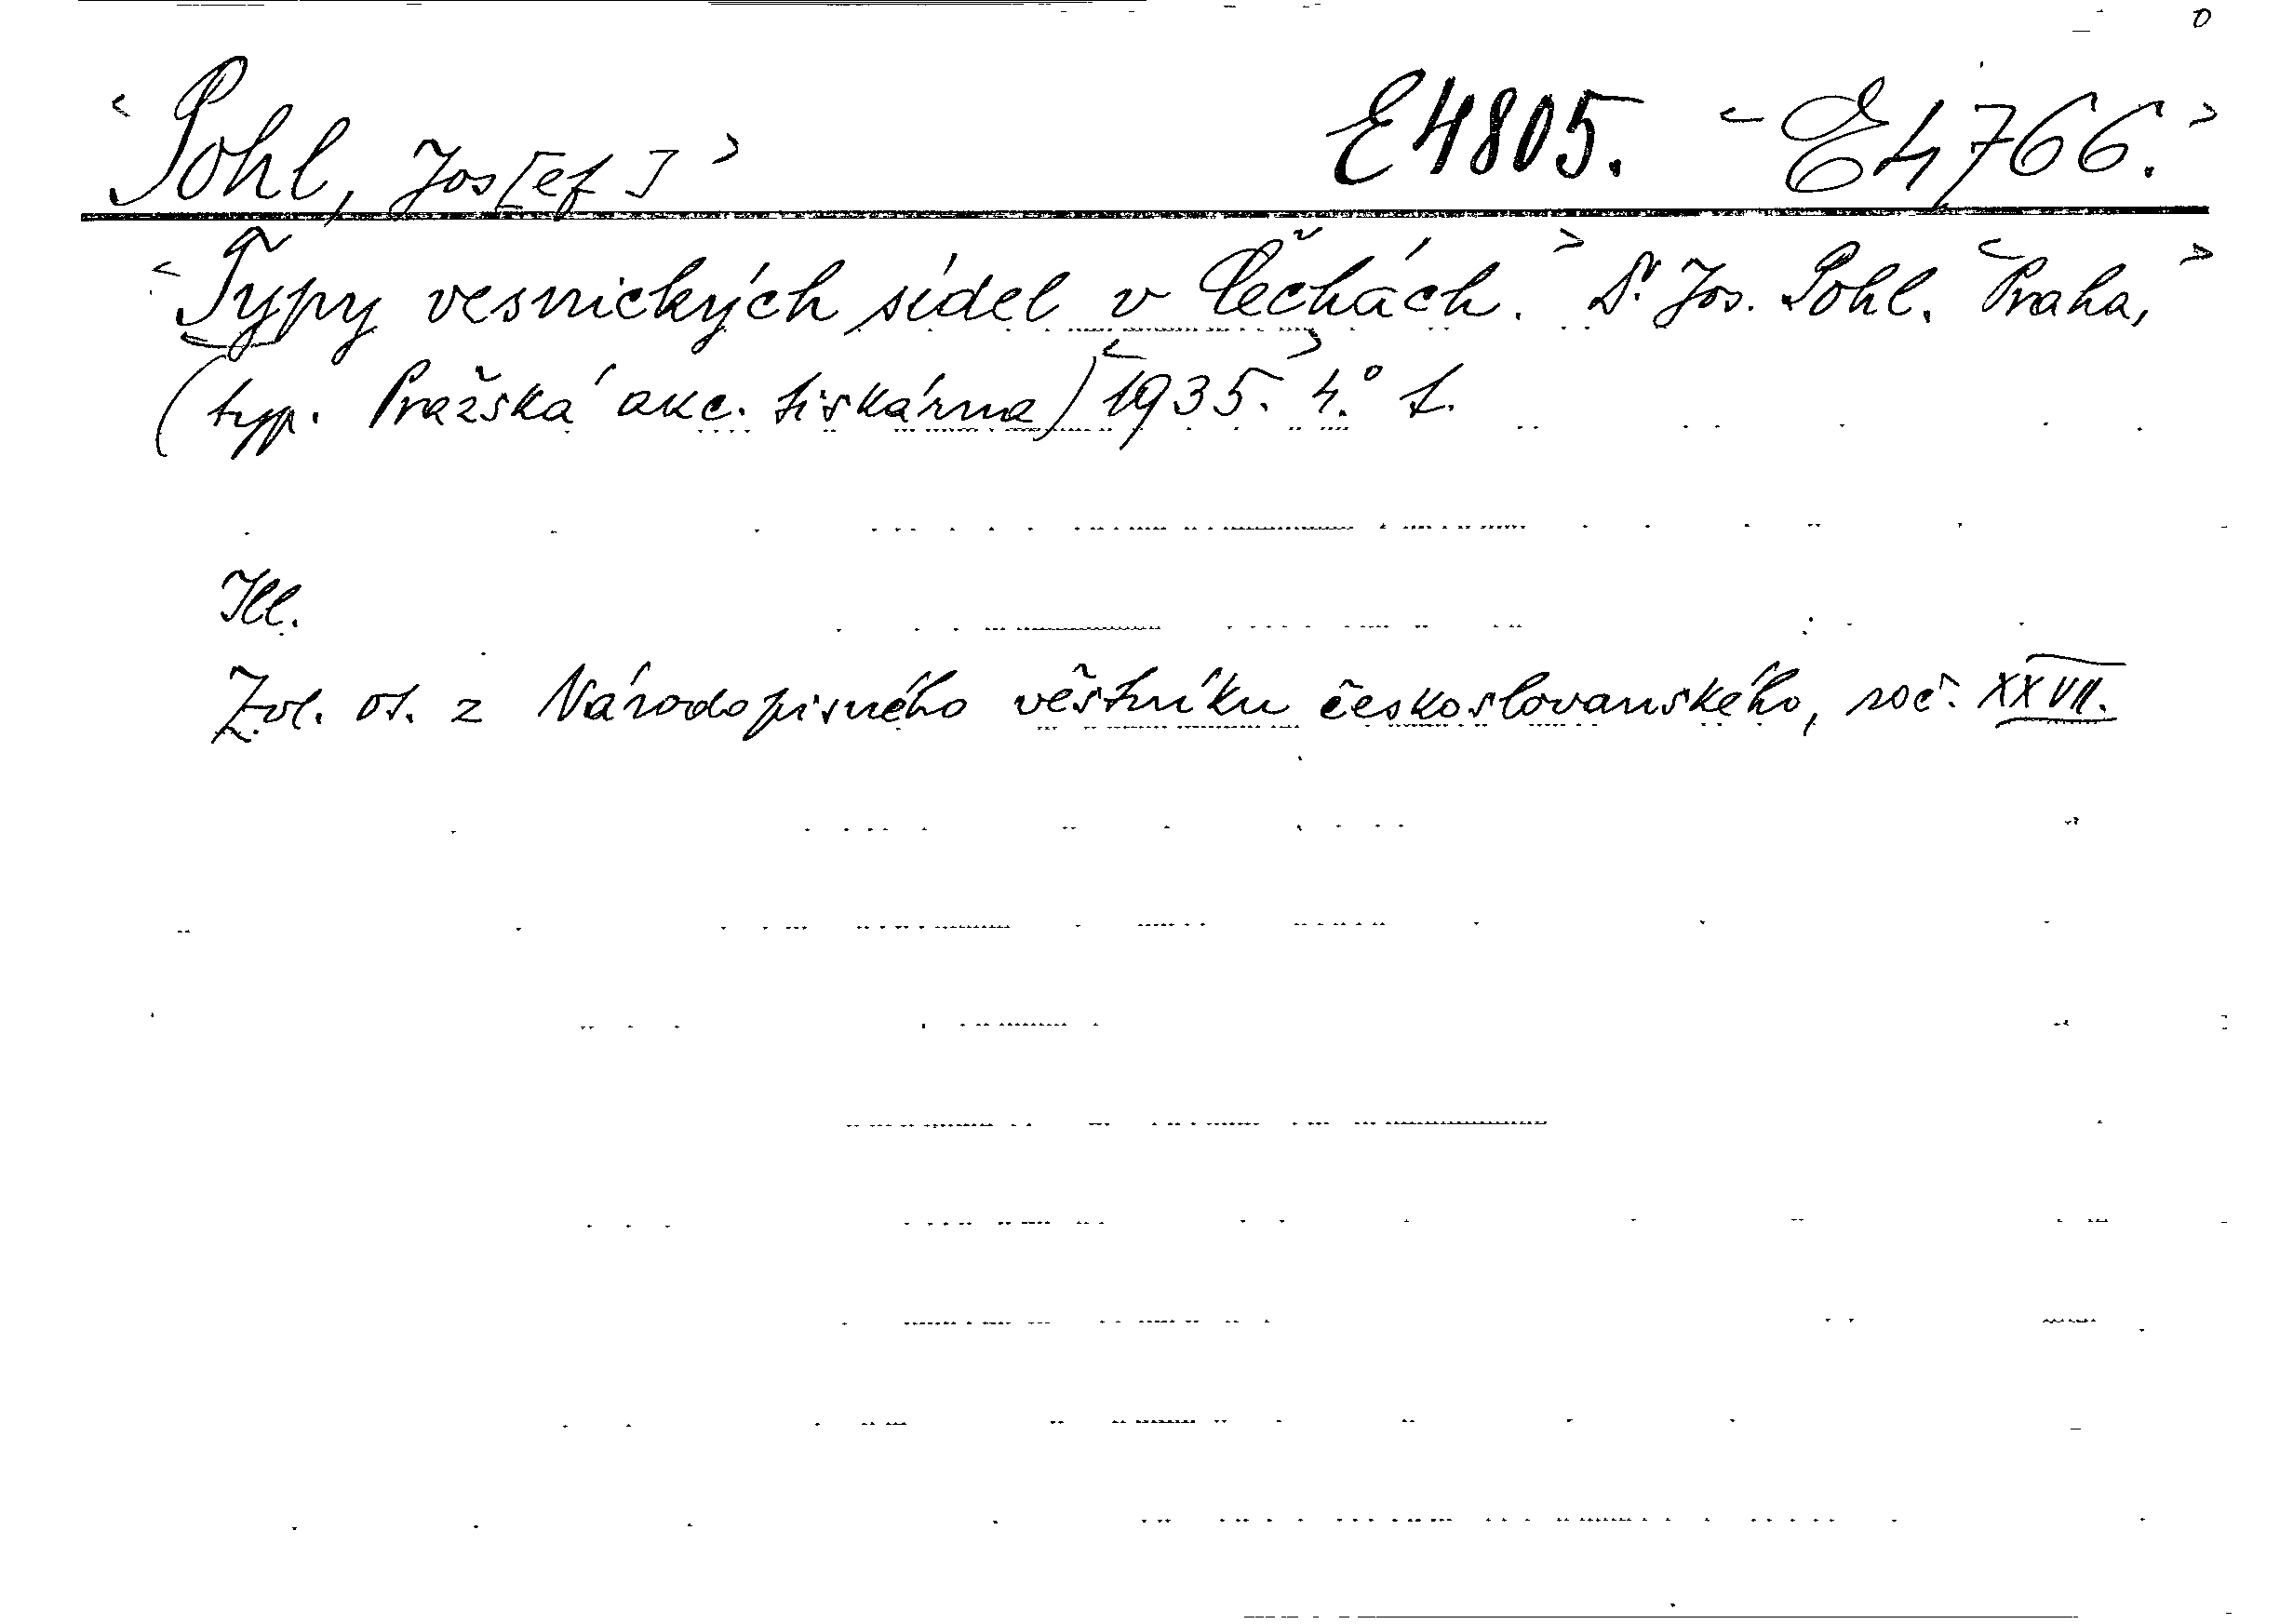 <Pohl, Jos[ef]> E4805. <E4766.>
<Typy vesnických sídel v Čechách.> Dr. Jos. Pohl. <Praha,>
(typ. Pražská akc. tiskárna) <1935.> 4.°
Ill.
Zvl. ot. z Národopisného věstníku českoslovanského, roč. XXVII.